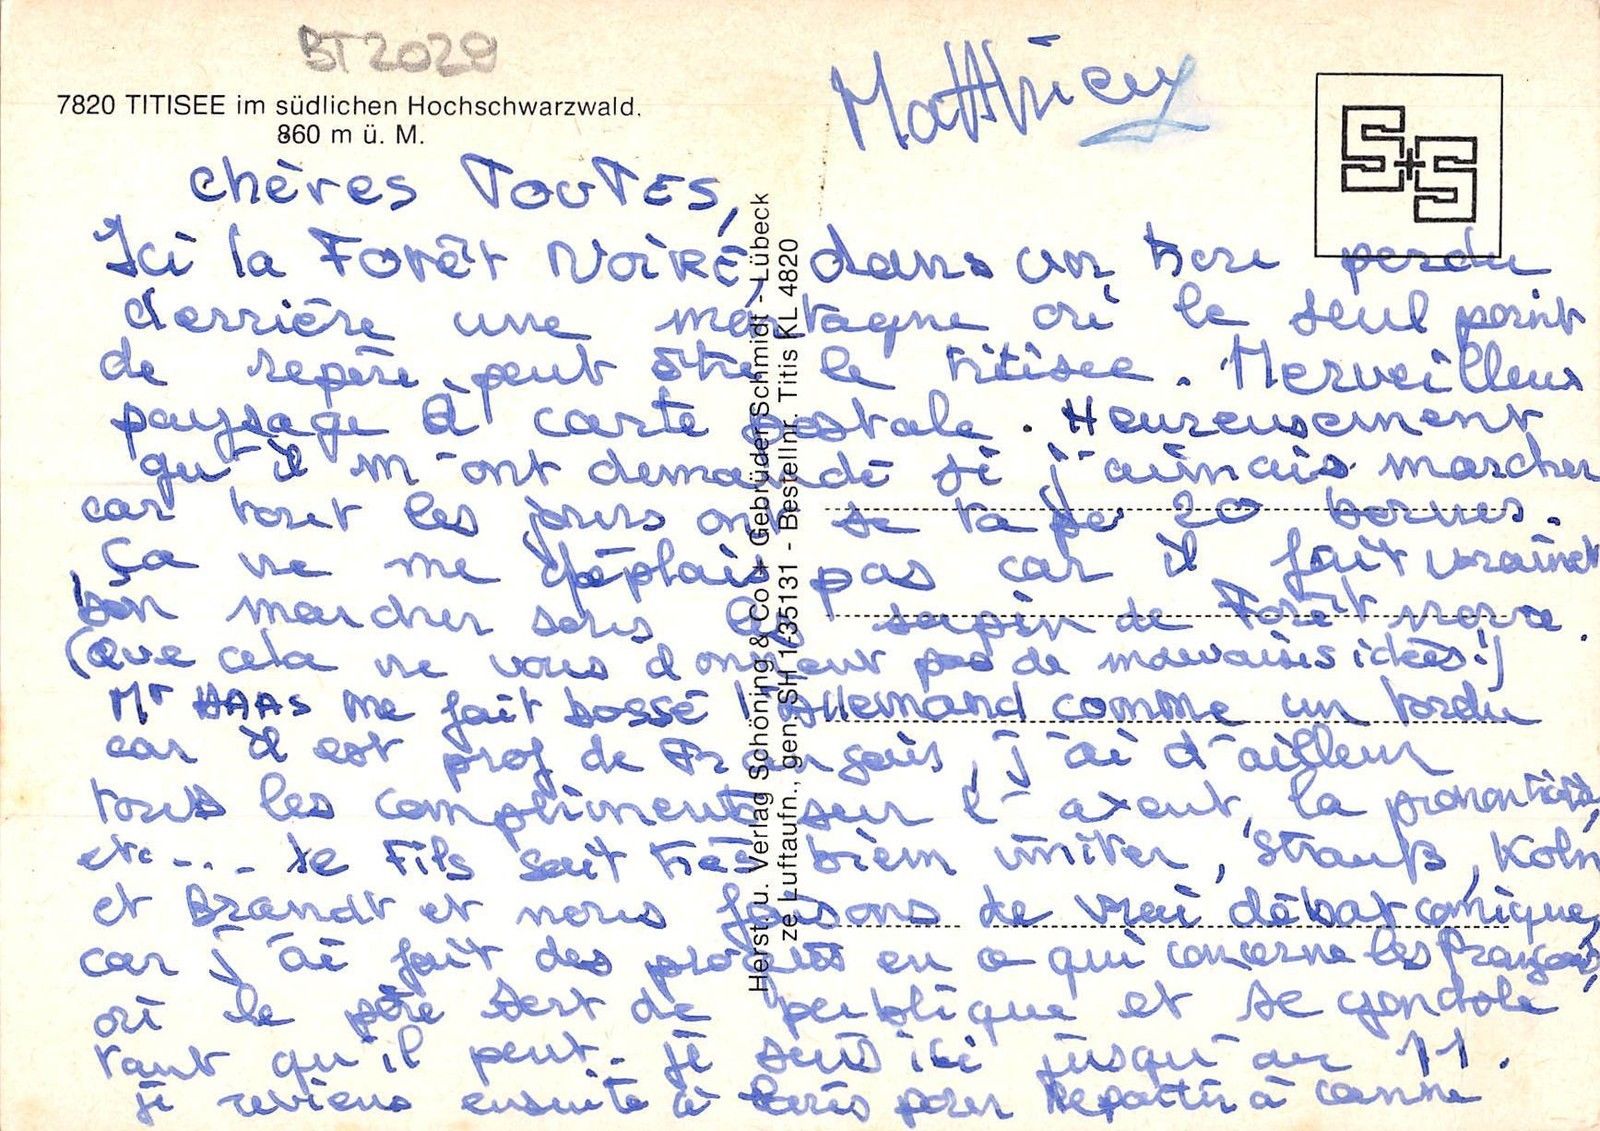 BT2029
7820 TITISEE im südlichen Hochschwarzwald.
860 m ü. M.
Matthieu
S+S
Chères TOUTES,
Ici la Forêt Noire, dans un trou perdu
derrière une montagne où le seul point
de repère peut être le titisee. Merveilleux
paysage à carte postale. Heureusement
qu'il m'ont demandé si j'aimais marcher
car tout les jours on se tape 20 bornes.
Ça ne me déplais pas car il fait vraiment
bon marcher sous les sapin de Forêt noire.
(Que cela ne vous donnent pas de mauvaises idées!)
Mr HAAS me fait bossé l'Allemand comme un tordu
car il est prof de Français, j'ai d'ailleur
tous les compliments sur l'axent, la prononciation
etc.... Le Fils sait très bien imiter, Strauß, Köln
et Brandt et nous faisons de vrai débat comique,
car j'ai fait des progrès en ce qui concerne les français,
où le père sert de publique et se gondole
tant qu'il peut. je suis ici jusqu'au 11.
je reviens ensuite à Paris pour repartir à canne
Herst. u. Verlag Schöning & Co + Gebrüder Schmidt - Lübeck
ze Luftaufn., gen. SH 1/35131 - Bestellnr. Titis KL 4820